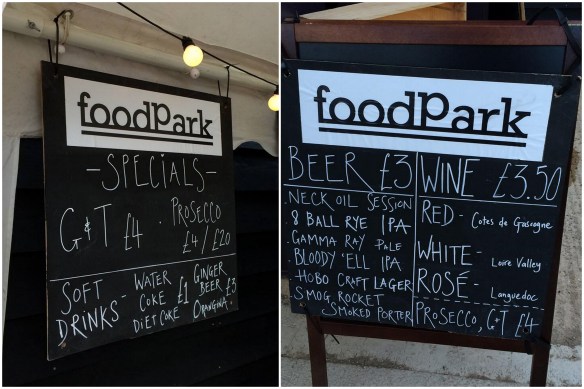 foodPark
-SPECIALS-
G&T £4
PROSECCO
£4/£20
SOFT
DRINKS -
WATER
COKE £1
DIET COKE
GINGER
BEER £3
ORANGINA
foodPark
BEER £3
·NECK OIL SESSION
·8 BALL RYE IPA
·GAMMA RAY PALE
·BLOODY 'ELL IPA
·HOBO CRAFT LAGER
·SMOG ROCKET
SMOKED PORTER
WINE £3.50
RED - Cotes de Gascogne
WHITE - Loire Valley
ROSÉ - Languedoc
PROSECCO, G&T £4